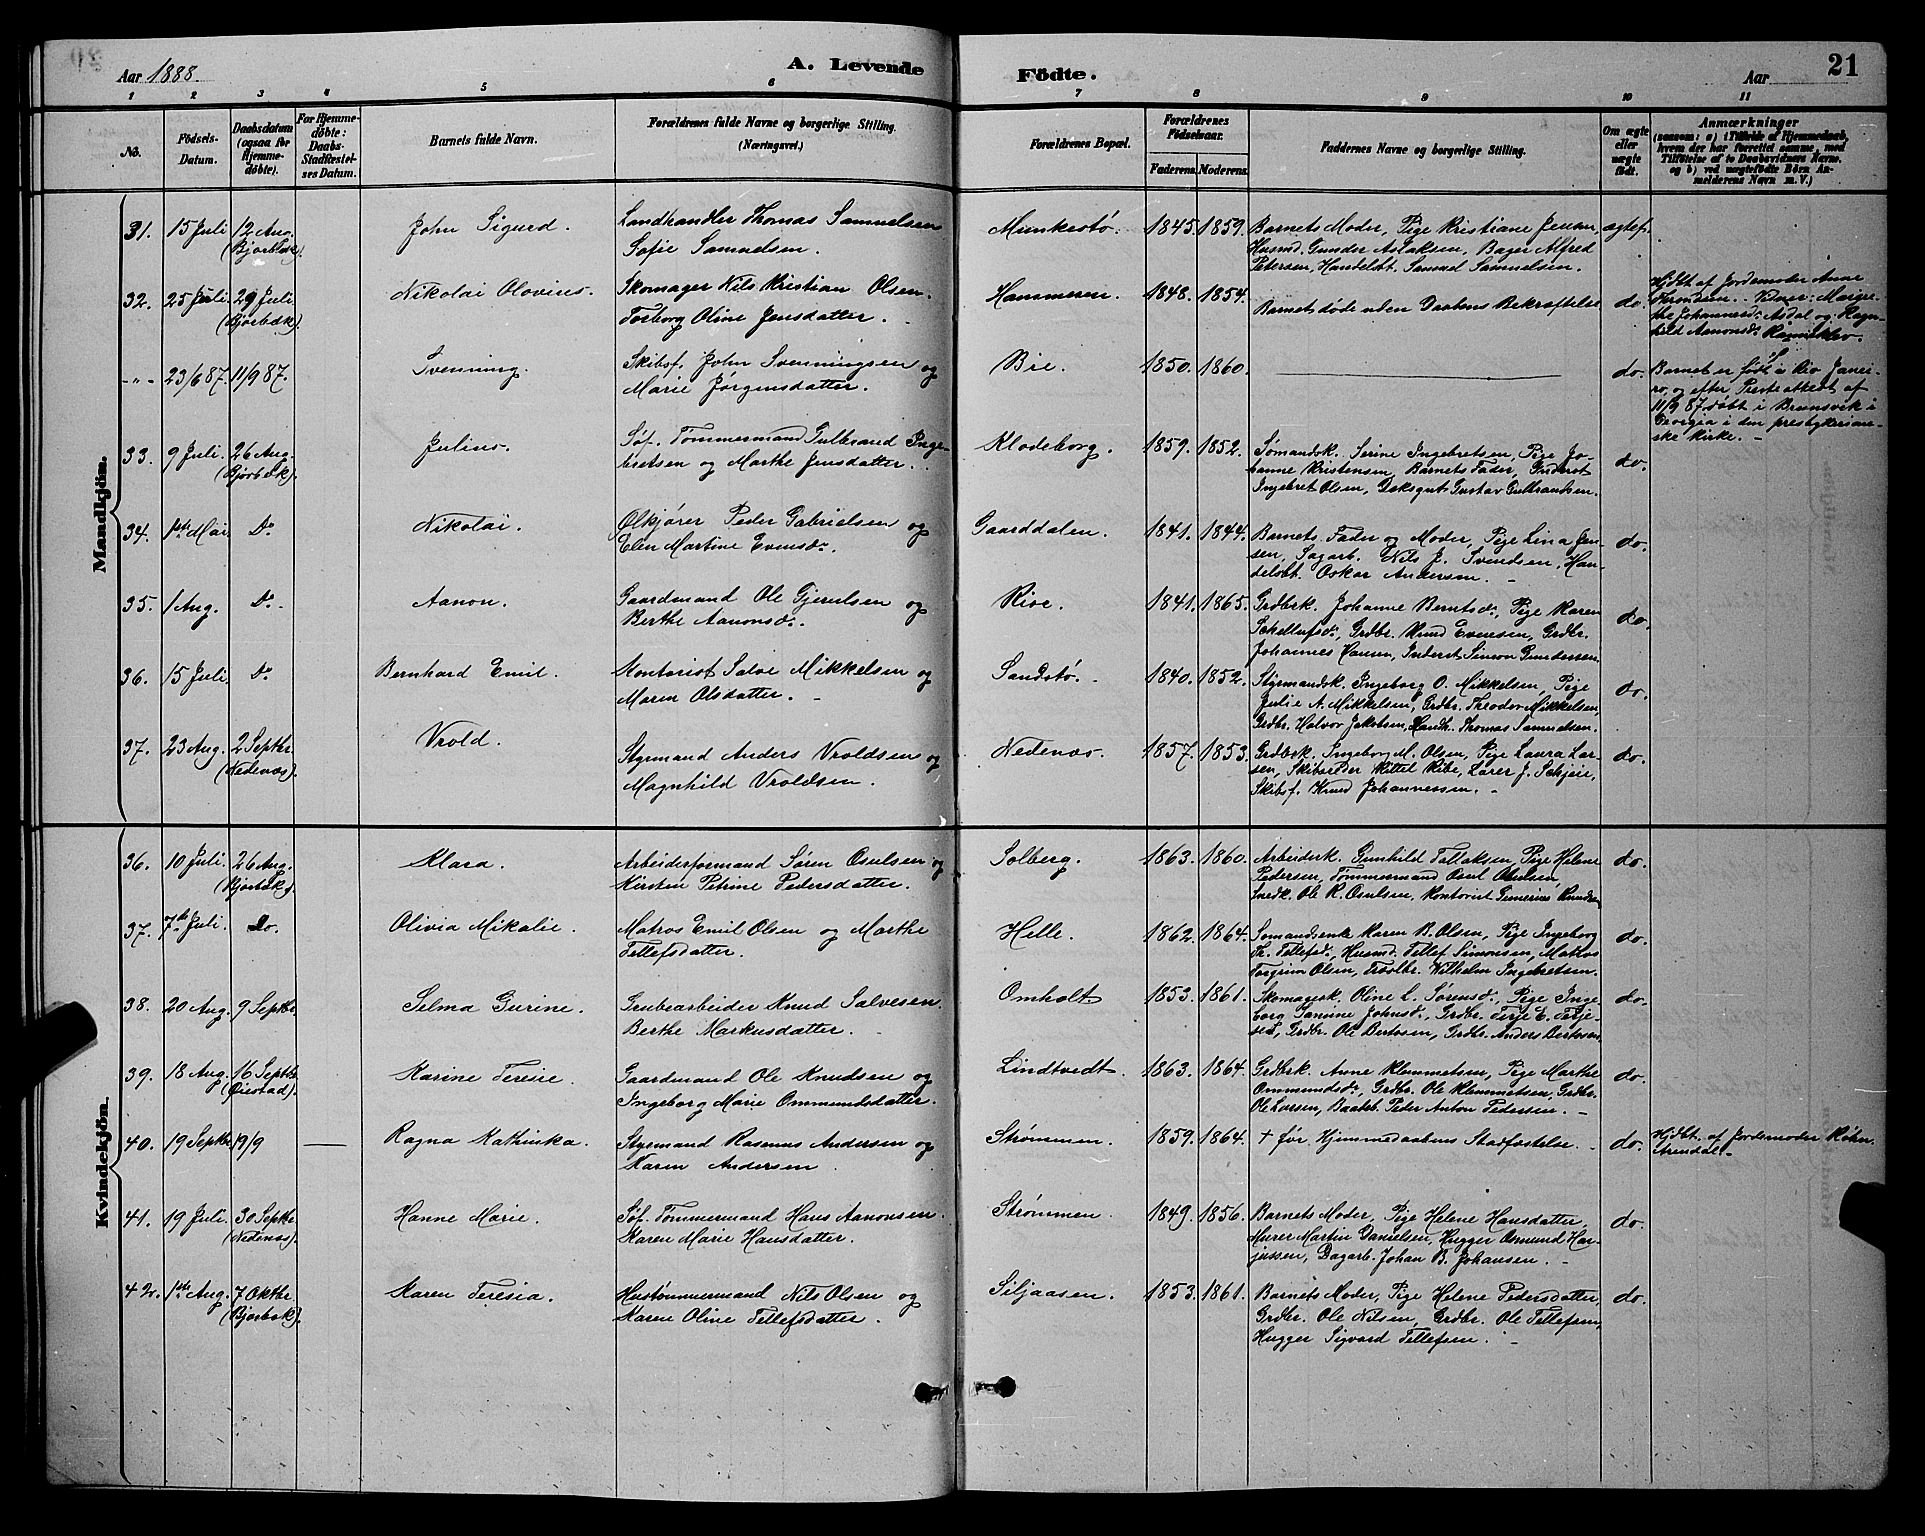 Aar 1888. A. Levende Födte. Aar 21
1 2 3 4 5 6 7 8 9 10 11
No. Födsels-Datum. Daabsdatum (ogsaa for Hjemme-döbte). For Hjemme-döbte: Daabs-Stadfæstel-ses Datum. Barnets fulde Navn. Forældrenes fulde Navne og borgerlige Stilling. (Næringsvei.) Forældrenes Bopæl. Forældrenes Födselsaar. Faderens. Moderens. Faddernes Navne og borgerlige Stilling. Om ægte eller uægte födt. Anmærkninger
Mandkjön.
31. 15 Juli 12 Aug. (Bjorbæk). John Sigurd. Landhandler Thomas Samuelsen
Sofie Samuelsen.
Munkestø. 1845. 1859. Barnets Moder, Pige Kristiane Jensen, ægtef.
Husmd. Gunder Aslaksen, Bager Alfred
Petersen, Handelsbt. Samuel Samuelsen.
32. 25 Juli 29 Juli (Bjorbæk). Nikolai Olovius. Skomager Nils Kristian Olsen.
Torborg Oline Jensdatter.
Hammeren. 1848. 1854. Barnet døde uden Daabens Bekræftelse do.
Hjdbt. af Jordemoder Anne
Vidner: Margre-
the Johannesd. Asdal og Ragn-
hild Aanonsd.
-"- 23/6 87. 11/9 87. Svenning. Skibsf. John Svenningsen og
Marie Jørgensdatter.
Bie. 1850. 1860. do.
Barnet er født i Rio Janei-
ro, og efter Presteattest af
11/9 87 døbt i Brunsvik i
Georgia i den presbyterian-
ske Kirke.
33. 9 Juli. 26 Aug. (Bjorbæk). Julius. Søf. Tømmermand Gulbrand Inge-
bretsen og Marthe Jensdatter.
Klodeborg. 1859. 1852. Sømandsk. Serine Ingebretsen, Pige Jo-
hanne Kristensen, Barnets Fader, Inderst
Ingebret Olsen, Dæksgut Gustav Gulbrantsen. do.
34. 1ste Mai. Do Nikolai. Ølkjører Peder Gabrielsen og
Elen Martine Evensd.
Gaarddalen. 1841. 1844. Barnets Fader og Moder, Pige Lina Jen-
sen, Sagarb. Nils J. Svendsen, Han-
delsbt. Oskar Andersen. do.
35. 1 Aug. Do. Aanon. Gaardmand Ole Gjerulsen og
Berthe Aanonsd.
Rise. 1841. 1865. Grdbrk. Johanne Berntsd., Pige Karen
Grdbr. Knud Evensen, Grdbr.
Johannes Hansen, Inderst Simon Gundersen do.
36. 15 Juli. Do Bernhard Emil. Kontorist Salve Mikkelsen og
Maren Olsdatter.
Sandstø. 1840. 1852. Styrmandsk. Ingeborg O. Mikkelsen, Pige
Julie A. Mikkelsen, Grdbr. Theodor Mikkelsen,
Grdbr. Halvor Jakobsen, Handh. Thomas Samuelsen. do.
37. 23 Aug. 2 Septbr. (Nedenæs). Vrold. Styrmand Anders Vroldsen og
Magnhild Vroldsen.
Nedenæs. 1857. 1853. Grdbrk. Ingeborg M. Olsen, Pige Laura Lar-
sen, Skibsreder Kittel Ribe, Lærer J. Schjeie,
Skibsf. Knud Johannessen. do.
Kvindekjön.
36. 10 Juli. 26 Aug. (Bjorbæk). Klara. Arbeiderformand Søren Osulsen og
Kirsten Petrine Pedersdatter.
Solberg. 1863. 1860. Arbeiderk. Gunhild Tallaksen, Pige Helene
Pedersen, Tømmermand Osul Osulsen
Snedk. Ole R. Osulsen, Kontorist Gunerius Knudsen do.
37. 7de Juli. Do. Olivia Mikalie. Matros Emil Olsen og Marthe
Tellefsdatter.
Helle. 1862. 1864. Sømandsenke Karen R. Olsen, Pige Ingeborg
Th. Tellefsd., Husmd. Tellef Simonsen, Matros
Torgrim Olsen, Wilhelm Ingebretsen. do.
38. 20 Aug. 9 Septbr. Selma Gurine. Grubearbeider Knud Salvesen.
Berthe Markusdatter.
Omholt 1853. 1861. Skomagerk. Oline L. Sørensd., Pige Inge-
borg Johnsd., Grdbr. Terje E. Terje-
sen, Grdbr. Ole Bertssen, Grdbr. Anders Bertssen. do.
39. 18 Aug. 16 Septbr. (Øiestad). Karine Teresie. Gaardmand Ole Knudsen og
Ingeborg Marie Ommundsdatter.
Lindtvedt. 1863. 1864. Grdbrk. Anne Klemmetsen, Pige Marthe
Ommundsd., Grdbr. Ole Klemmetsen, Grdbr.
Ole Larsen, Baatsb. Peder Anton Pedersen. do.
40. 19 Septbr. 19/9 Ragna Kathinka. Styrmand Rasmus Andersen og
Karen Andersen
Strømmen. 1859. 1864. † før Hjemmedaabens Stadfæstelse. do.
Hjdbt. af Jordemoder Røhn
Arendal.
41. 19 Juli. 30 Septbr. (Nedenæs). Hanne Marie. Søf. Tømmermand Hans Aanonsen.
Karen Marie Hansdatter.
Strømmen. 1849. 1856. Barnets Moder, Pige Helene Hansdatter,
Murer Martin Danielsen, Hugger Osmund Har-
jussen, Dagarb. Johan B. Johansen. do.
42. 1ste Aug. 7 Oktbr. (Bjorbæk). Karen Teresia. Hustømmermand Nils Olsen og
Karen Oline Tellefsdatter.
Siljaasen. 1853. 1861. Barnets Moder, Pige Helene Pedersdatter,
Grdbr. Ole Nilsen, Grdbr. Ole Tellefsen,
Hugger Sigvard Tellefsen. do.